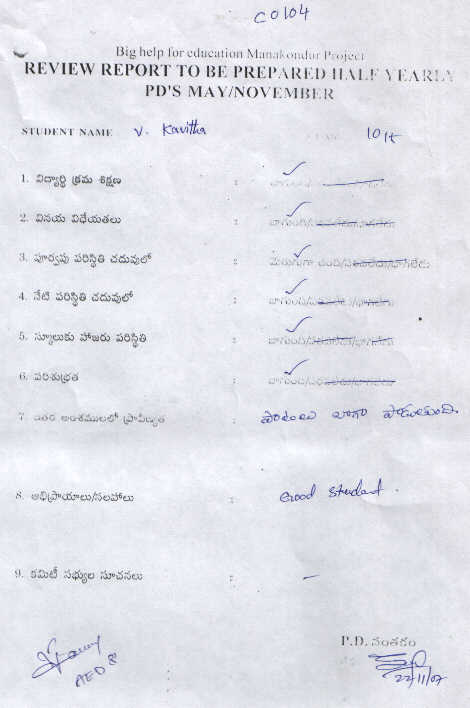 C0104
Big help for education Manakondur Project
REVIEW REPORT TO BE PREPARED HALF YEARLY
PD'S MAY/NOVEMBER
STUDENT NAME V. Kavitha 10th
1. విద్యార్థి క్రమ శిక్షణ :
2. వినయ విధేయతలు :
3. పూర్వపు పరిస్థితి చదువులో : మెరుగుగా ఉంది/పరవాలేదు/బాగాలేదు
4. నేటి పరిస్థితి చదువులో : బాగుంది/పరవాలేదు/బాగాలేదు
5. స్కూలుకు హాజరు పరిస్థితి : బాగుంది/పరవాలేదు/బాగాలేదు
6. పరిశుభ్రత : బాగుంది/పరవాలేదు/బాగాలేదు
7. ఇతర అంశములలో ప్రావీణ్యత : పాటలు బాగా పాడుతుంది.
8. అభిప్రాయాలు/సలహాలు : Good student.
9. కమిటీ సభ్యుల సూచనలు : –
P.D. సంతకం
AEO
22/11/07